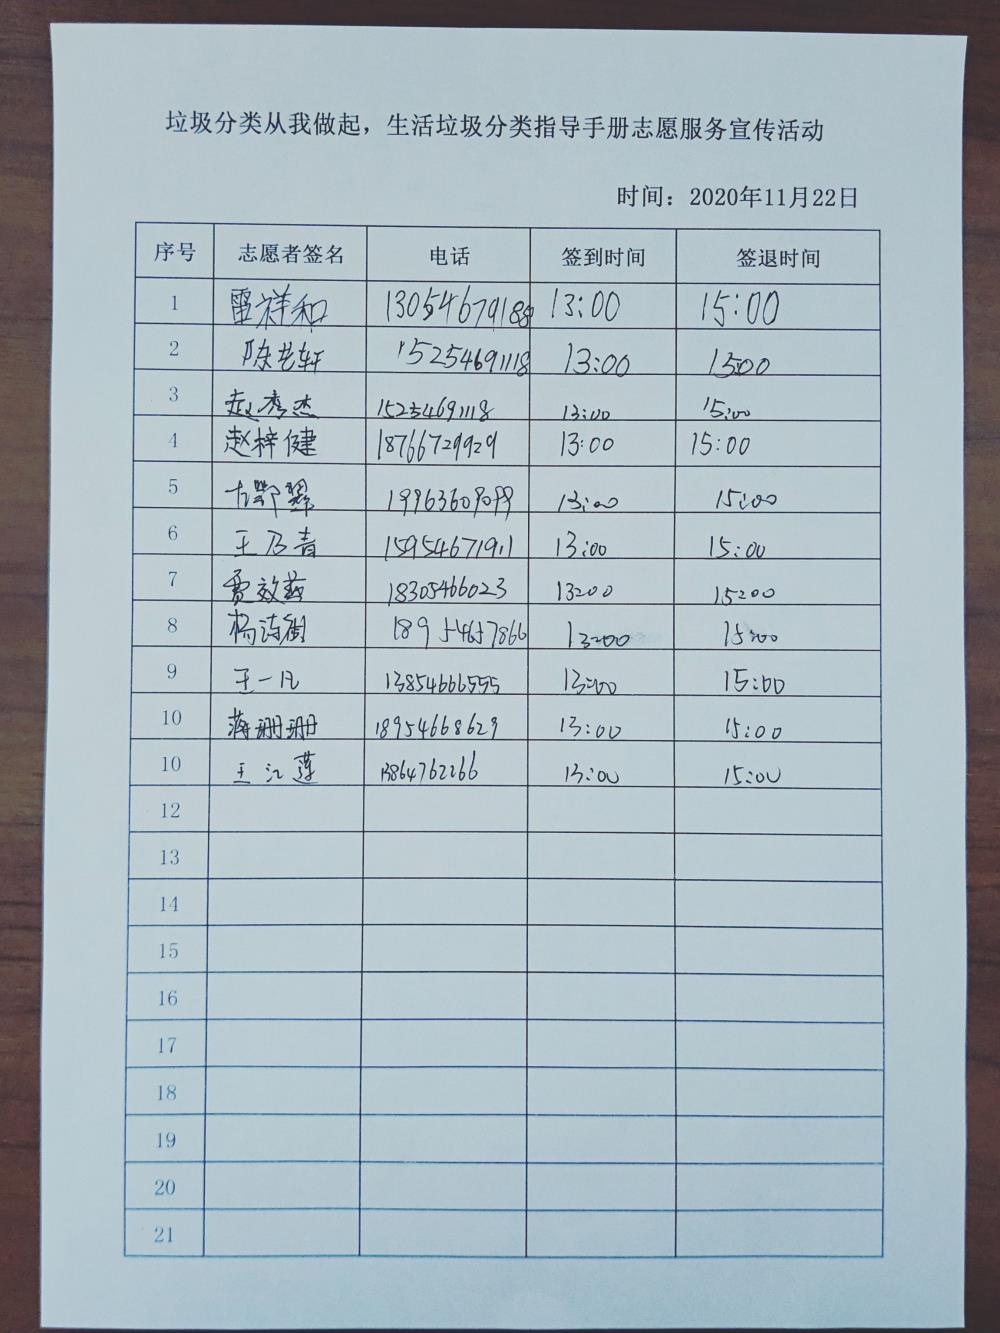 垃圾分类从我做起，生活垃圾分类指导手册志愿服务宣传活动
时间：2020年11月22日
序号 志愿者签名 电话 签到时间 签退时间
1 雷祥和 13054679188 13:00 15:00
2 陈艺轩 15254691118 13:00 1500
3 赵秀杰 15254691118 13:00 15:00
4 赵梓健 18766729929 13:00 15:00
5 13:00 15:00
6 王乃青 15954671911 13:00 15:00
7 贾效燕 18305466023 13:00 15:00
8 杨诗街 18954657866 13:00 15:00
9 王一凡 13854666555 13:00 15:00
10 蒋珊珊 18954668629 13:00 15:00
10 王江莲 13864762266 13:00 15:00
12
13
14
15
16
17
18
19
20
21